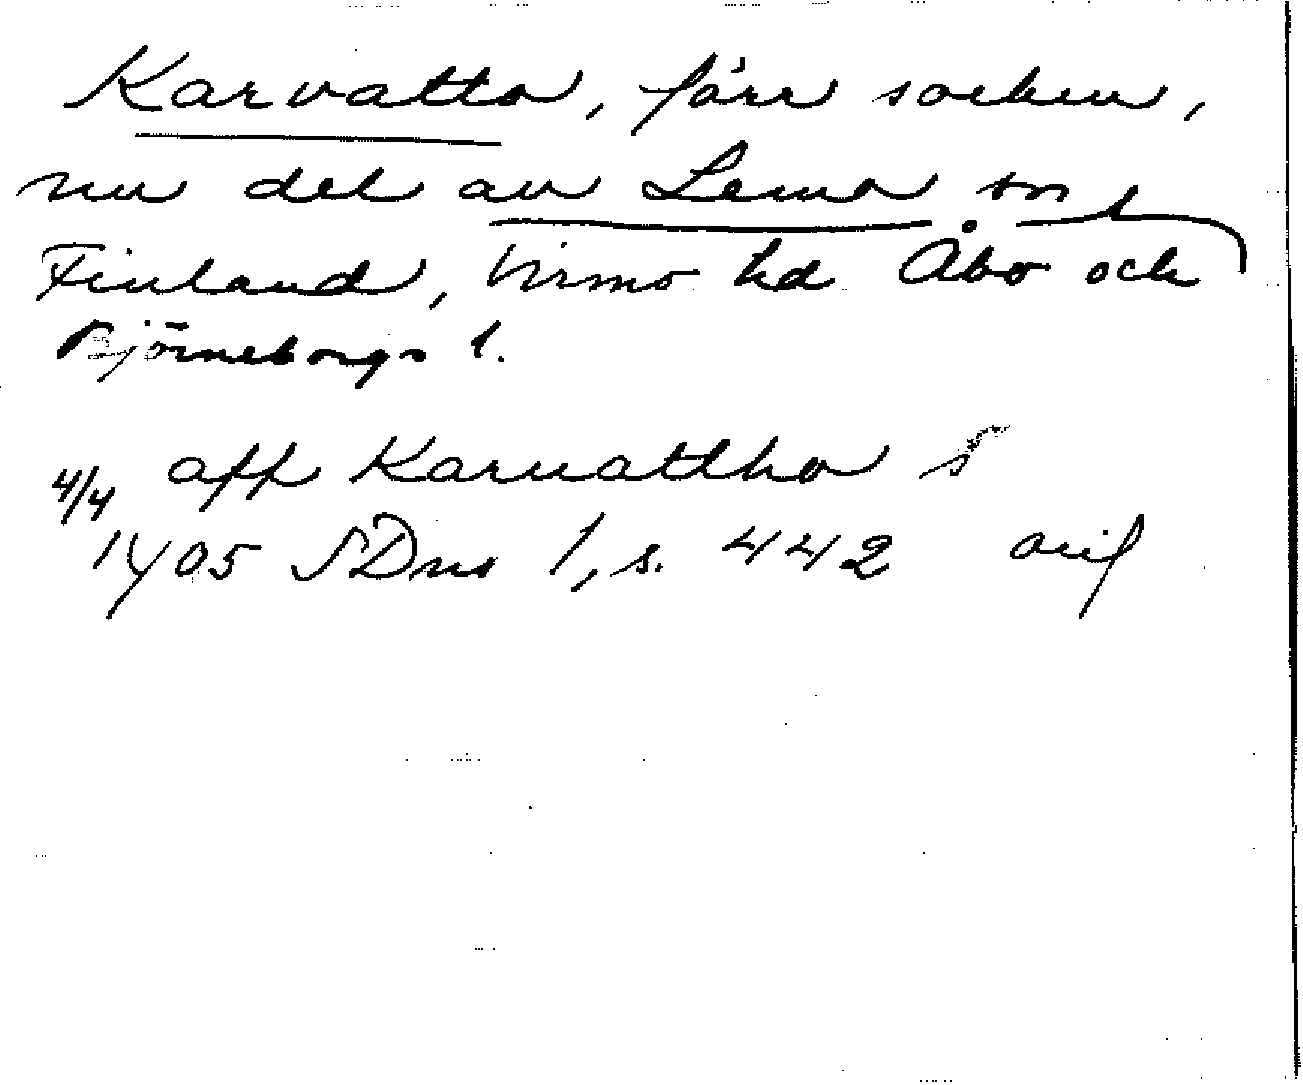 Karvatto, förr socken,
nu del av Lemo sn
Finland, Virmo hd Åbo och
Björneborgs l.
4/4 aff Karuattho s
1405 SDns 1, s. 442 avs